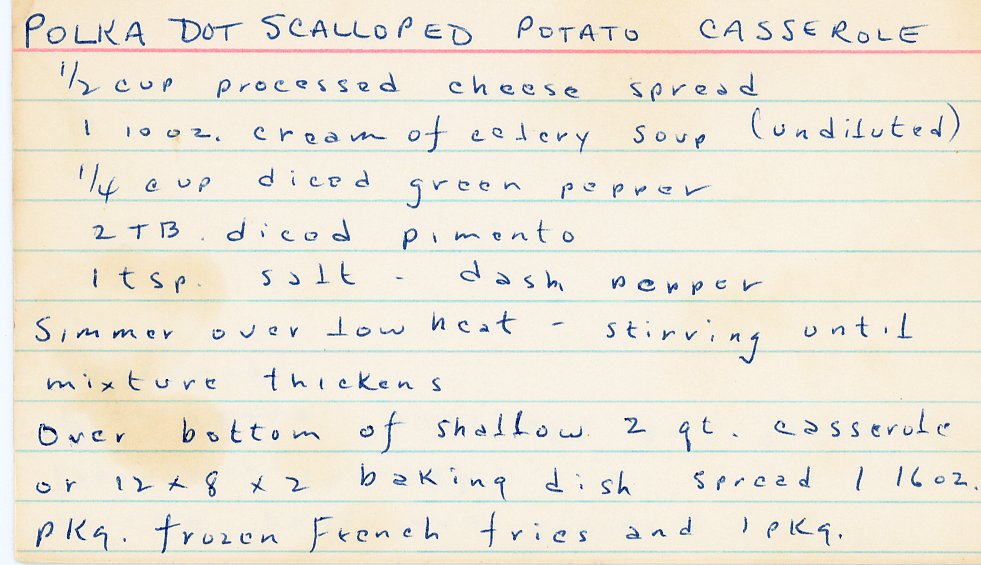 POLKA DOT SCALLOPED POTATO CASSEROLE
1/2 cup processed cheese spread
1 10 oz. cream of celery soup (undiluted)
1/4 cup diced green pepper
2 TB. diced pimento
1 tsp. salt - dash pepper
Simmer over low heat - stirring until
mixture thickens
Over bottom of shallow 2 qt. casserole
or 12 x 8 x 2 baking dish spread 1 16oz.
pKg. frozen French fries and 1 pKg.